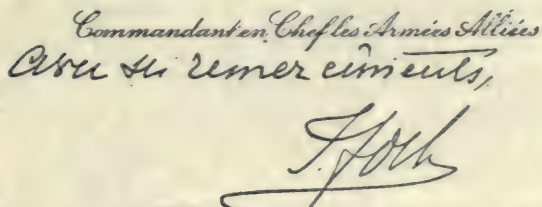 Commandant en Chef les Armées Alliées
avec ses remerciments,
F. Foch